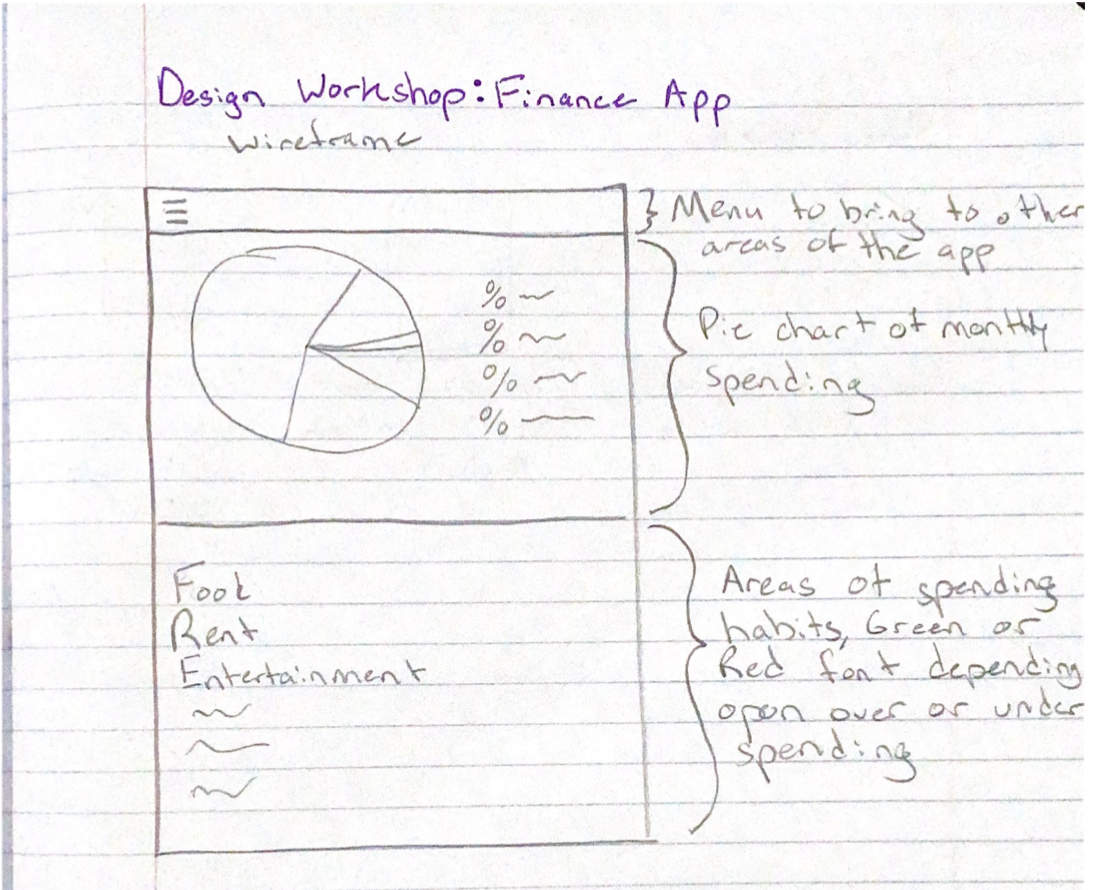 Design Workshop: Finance App
Wireframe
} Menu to bring to other
areas of the app
% ~
% ~
% ~
% —
Pie chart of monthly
spending
Food
Rent
Entertainment
Areas of spending
habits, Green or
Red font depending
opon over or under
spending